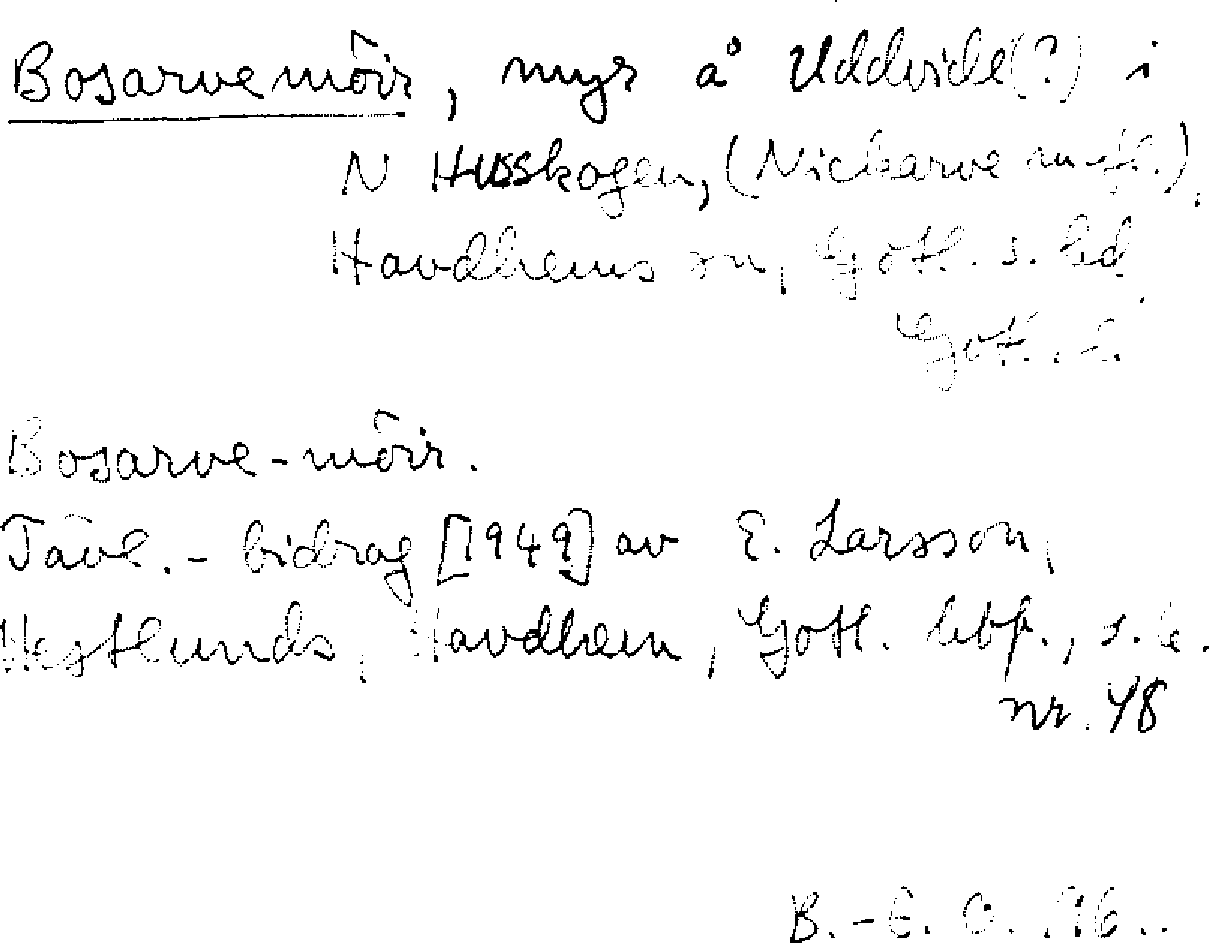 Bosarvemôir, myr å Uddvide(?) i
N Husskogen, (Nickarve m fl.),
Havdhems sn, Gotl. s. hd
Gotl. l.
Bosarve-môir.
Tävl.-bidrag [1949] av E. Larsson,
Westlunds, Havdhem, Gotl. bbf., s.k.
nr. 48
B.-E. O. 96.